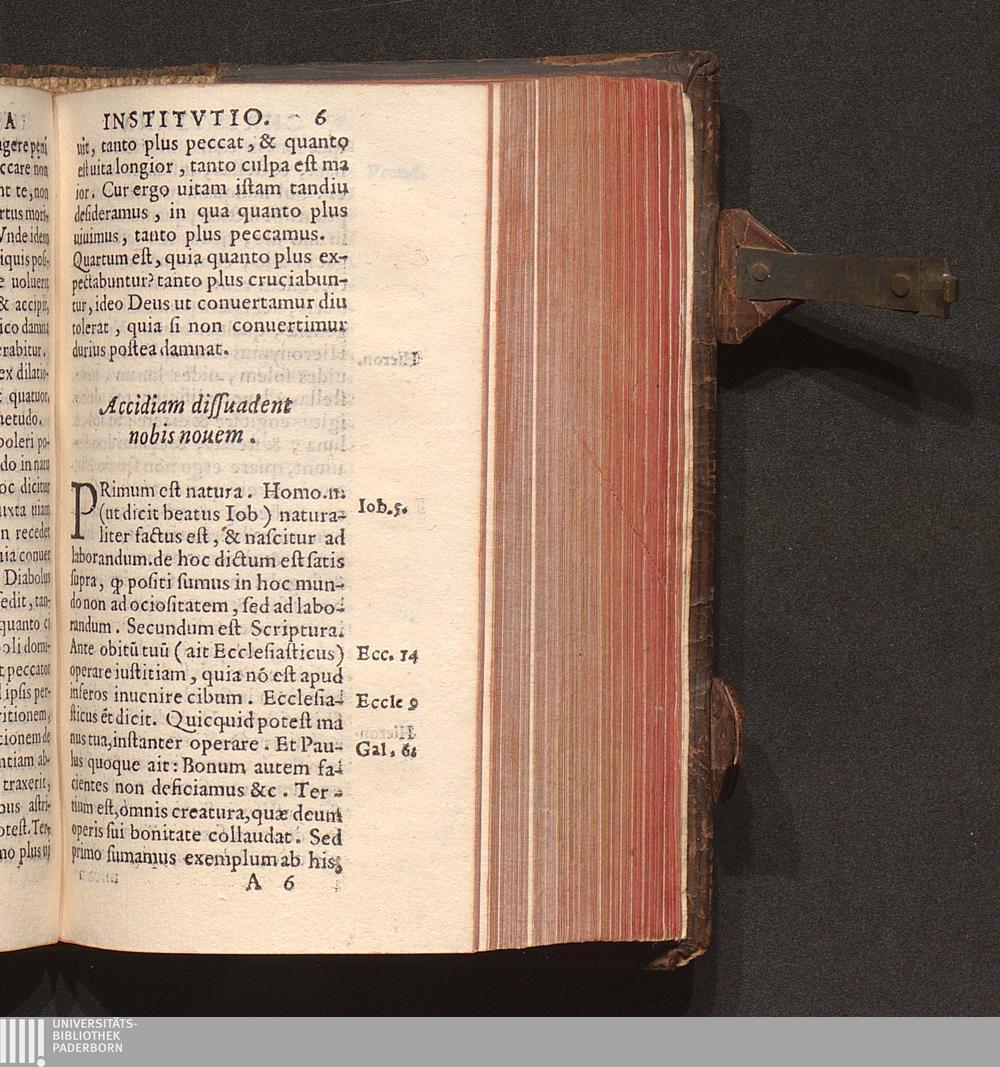 A
agere peni
ccare non
nt te, non
rtus mori,
Vnde idem
iquis pos-
e uoluerit
& accipit,
ico damna
erabitur.
ex dilatio-
t quatuor,
uetudo.
oleri po-
do in natu
oc dicitur
uxta uiam
n recedet
uia conuer
Diabolus
sedit, tan-
quanto ci
oli domi-
t peccator
l ipsis per-
ritionem,
tionem de
ntiam ab-
traxerit,
bus astri-
otest. Ter-
mo plus ui
INSTITVTIO. 6
uit, tanto plus peccat, & quanto
est uita longior, tanto culpa est ma
ior. Cur ergo uitam istam tandiu
desideramus, in qua quanto plus
uiuimus, tanto plus peccamus.
Quartum est, quia quanto plus ex-
pectabuntur? tanto plus cruciabun-
tur, ideo Deus ut conuertamur diu
tolerat, quia si non conuertimur
durius postea damnat.
Accidiam dissuadent
nobis nouem.
PRimum est natura. Homo.n.
(ut dicit beatus Iob) natura-
liter factus est, & nascitur ad
laborandum. de hoc dictum est satis
supra, ꝙ positi sumus in hoc mun-
do non ad ociositatem, sed ad labo-
randum. Secundum est Scriptura.
Ante obitū tuū (ait Ecclesiasticus)
operare iustitiam, quia nō est apud
inferos inuenire cibum. Ecclesia-
sticus ēt dicit. Quicquid potest ma
nus tua, instanter operare. Et Pau-
lus quoque ait: Bonum autem fa-
cientes non deficiamus &c. Ter-
tium est, omnis creatura, quæ deum
operis sui bonitate collaudat. Sed
primo sumamus exemplum ab his,
A 6
Iob. 5.
Ecc. 14
Eccle 9
Gal. 6.
UNIVERSITÄTS-
BIBLIOTHEK
PADERBORN